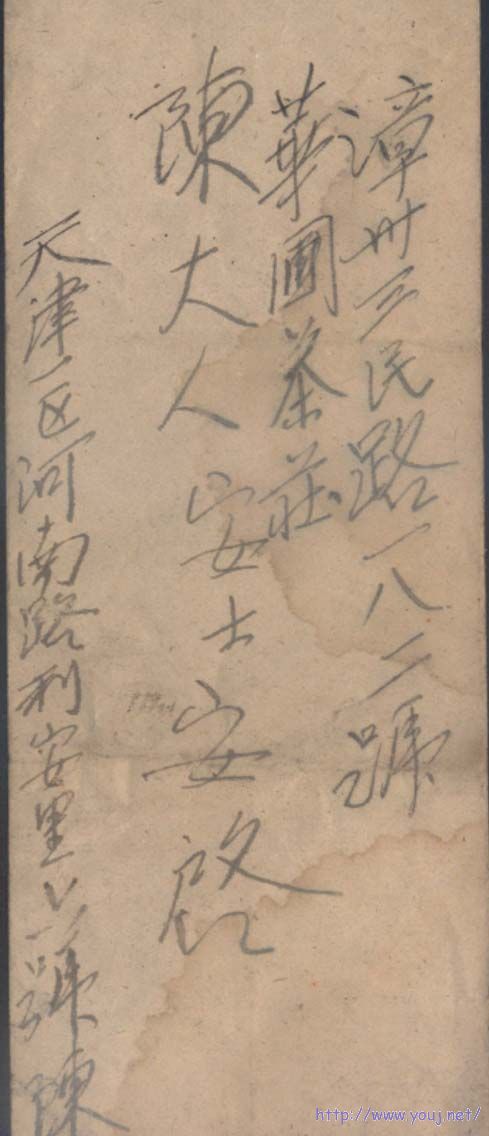 漳州三民路一八二號
華圃茶莊
陳大人安士安啟
天津一区河南路利安里六號陳
http://www.youj.net/